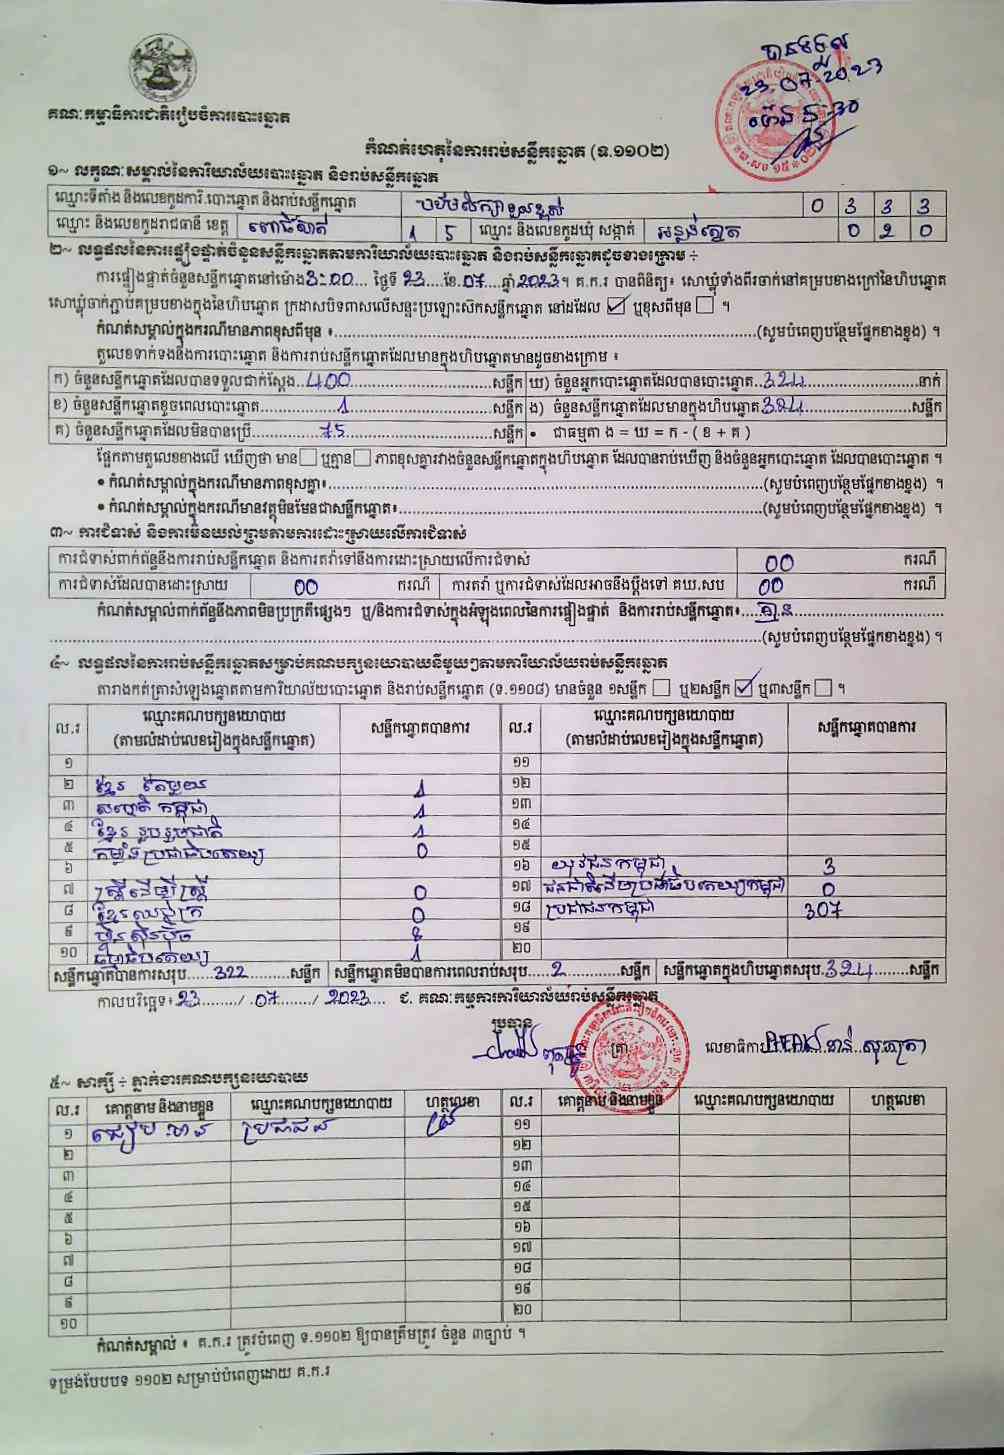 បានទទួល
23.07.2023
ម៉ោង 5:30
គណៈកម្មាធិការជាតិរៀបចំការបោះឆ្នោត
កំណត់ហេតុនៃការរាប់សន្លឹកឆ្នោត (ទ.១១០២)
១~ លក្ខណៈសម្គាល់នៃការិយាល័យបោះឆ្នោត និងរាប់សន្លឹកឆ្នោត
ឈ្មោះទីតាំង និងលេខកូដការិ.បោះឆ្នោត និងរាប់សន្លឹកឆ្នោត 0 3 3 3
ឈ្មោះ និងលេខកូដរាជធានី ខេត្ត ពោធិ៍សាត់ 1 5 ឈ្មោះ និងលេខកូដឃុំ សង្កាត់ អន្លង់ត្នោត 0 2 0
២~ លទ្ធផលនៃការផ្ទៀងផ្ទាត់ចំនួនសន្លឹកឆ្នោតតាមការិយាល័យបោះឆ្នោត និងរាប់សន្លឹកឆ្នោតដូចខាងក្រោម ÷
ការផ្ទៀងផ្ទាត់ចំនួនសន្លឹកឆ្នោតនៅម៉ោង 3:00 ថ្ងៃទី 23 ខែ 07 ឆ្នាំ 2023។ គ.ក.រ បានពិនិត្យ៖ សោឃ្លុំទាំងពីរចាក់នៅគម្របខាងក្រៅនៃហិបឆ្នោត
សោឃ្លុំចាក់ភ្ជាប់គម្របខាងក្នុងនៃហិបឆ្នោត ក្រដាសបិទពាសលើសន្ទះប្រឡោះស៊កសន្លឹកឆ្នោត នៅដដែល ☑ ឬខុសពីមុន ☐ ។
កំណត់សម្គាល់ក្នុងករណីមានភាពខុសពីមុន ៖ (សូមបំពេញបន្ថែមផ្នែកខាងខ្នង) ។
តួលេខទាក់ទងនឹងការបោះឆ្នោត និងការរាប់សន្លឹកឆ្នោតដែលមានក្នុងហិបឆ្នោតមានដូចខាងក្រោម ៖
ក) ចំនួនសន្លឹកឆ្នោតដែលបានទទួលជាក់ស្តែង 400 សន្លឹក ឃ) ចំនួនអ្នកបោះឆ្នោតដែលបានបោះឆ្នោត 324 នាក់
ខ) ចំនួនសន្លឹកឆ្នោតខូចពេលបោះឆ្នោត 1 សន្លឹក ង) ចំនួនសន្លឹកឆ្នោតដែលមានក្នុងហិបឆ្នោត 324 សន្លឹក
គ) ចំនួនសន្លឹកឆ្នោតដែលមិនបានប្រើ 75 សន្លឹក • ជាធម្មតា ង = ឃ = ក - ( ខ + គ )
ផ្អែកតាមតួលេខខាងលើ ឃើញថា មាន ☐ ឬគ្មាន ☐ ភាពខុសគ្នារវាងចំនួនសន្លឹកឆ្នោតក្នុងហិបឆ្នោត ដែលបានរាប់ឃើញ និងចំនួនអ្នកបោះឆ្នោត ដែលបានបោះឆ្នោត ។
• កំណត់សម្គាល់ក្នុងករណីមានភាពខុសគ្នា៖ (សូមបំពេញបន្ថែមផ្នែកខាងខ្នង) ។
• កំណត់សម្គាល់ក្នុងករណីមានវត្ថុមិនមែនជាសន្លឹកឆ្នោត៖ (សូមបំពេញបន្ថែមផ្នែកខាងខ្នង) ។
៣~ ការជំទាស់ និងការមិនយល់ព្រមតាមការដោះស្រាយលើការជំទាស់
ការជំទាស់ពាក់ព័ន្ធនឹងការរាប់សន្លឹកឆ្នោត និងការតវ៉ាទៅនឹងការដោះស្រាយលើការជំទាស់ 00 ករណី
ការជំទាស់ដែលបានដោះស្រាយ 00 ករណី ការតវ៉ា ឬការជំទាស់ដែលអាចនឹងប្តឹងទៅ គឃ.សប 00 ករណី
កំណត់សម្គាល់ពាក់ព័ន្ធនឹងភាពមិនប្រក្រតីផ្សេងៗ ឬ/និងការជំទាស់ក្នុងអំឡុងពេលនៃការផ្ទៀងផ្ទាត់ និងការរាប់សន្លឹកឆ្នោត៖ គ្មាន
(សូមបំពេញបន្ថែមផ្នែកខាងខ្នង) ។
៤~ លទ្ធផលនៃការរាប់សន្លឹកឆ្នោតសម្រាប់គណបក្សនយោបាយនីមួយៗតាមការិយាល័យរាប់សន្លឹកឆ្នោត
តារាងកត់ត្រាសំឡេងឆ្នោតតាមការិយាល័យបោះឆ្នោត និងរាប់សន្លឹកឆ្នោត (ទ.១១០៨) មានចំនួន ១សន្លឹក ☐ ឬ២សន្លឹក ☑ ឬ៣សន្លឹក ☐ ។
ល.រ ឈ្មោះគណបក្សនយោបាយ (តាមលំដាប់លេខរៀងក្នុងសន្លឹកឆ្នោត) សន្លឹកឆ្នោតបានការ ល.រ ឈ្មោះគណបក្សនយោបាយ (តាមលំដាប់លេខរៀងក្នុងសន្លឹកឆ្នោត) សន្លឹកឆ្នោតបានការ
១ ១១
២ ខ្មែរ តែមួយ 1 ១២
៣ សញ្ជាតិ កម្ពុជា 1 ១៣
៤ ខ្មែរ រួបរួមជាតិ 1 ១៤
៥ កម្លាំងប្រជាធិបតេយ្យ 0 ១៥
៦ ១៦ យុវជនកម្ពុជា 3
៧ ស្ត្រីដើម្បីស្ត្រី 0 ១៧ ជនជាតិដើមប្រជាធិបតេយ្យកម្ពុជា 0
៨ ខ្មែរឈប់ក្រ 0 ១៨ ប្រជាជនកម្ពុជា 307
៩ ហ្វ៊ុនស៊ិនប៉ិច 8 ១៩
១០ ធម្មាធិបតេយ្យ 1 ២០
សន្លឹកឆ្នោតបានការសរុប 322 សន្លឹក សន្លឹកឆ្នោតមិនបានការពេលរាប់សរុប 2 សន្លឹក សន្លឹកឆ្នោតក្នុងហិបឆ្នោតសរុប 324 សន្លឹក
កាលបរិច្ឆេទ៖ 23 / 07 / 2023 ជ. គណៈកម្មការការិយាល័យរាប់សន្លឹកឆ្នោត
ប្រធាន
ត្រា
លេខាធិការ
៥~ សាក្សី ÷ ភ្នាក់ងារគណបក្សនយោបាយ
ល.រ គោត្តនាម និងនាមខ្លួន ឈ្មោះគណបក្សនយោបាយ ហត្ថលេខា ល.រ គោត្តនាម និងនាមខ្លួន ឈ្មោះគណបក្សនយោបាយ ហត្ថលេខា
១ ប្រជាជន ១១
២ ១២
៣ ១៣
៤ ១៤
៥ ១៥
៦ ១៦
៧ ១៧
៨ ១៨
៩ ១៩
១០ ២០
កំណត់សម្គាល់ ៖ គ.ក.រ ត្រូវបំពេញ ទ.១១០២ ឱ្យបានត្រឹមត្រូវ ចំនួន ៣ច្បាប់ ។
ទម្រង់បែបបទ ១១០២ សម្រាប់បំពេញដោយ គ.ក.រ